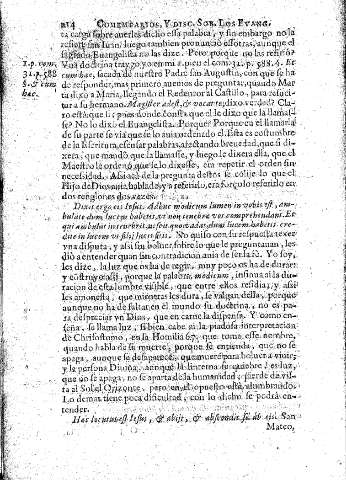 214 COMENTARIOS, Y DISC. SOB. LOS EVANG.
ta carga sobre aueries dicho essa palabra, y sin embargo no la
refiere San Iuan, luego tambien pronunciò essotras, aunque el
sagrado Euangelista no las dize. Pero porque no las refiriò?
Vna dotrina traygo yo en mi 1. p. cu com. 31. p. 588. §. Et
cum hæc, sacada de nuestro Padre san Augustin, con que se ha
de responder, mas primero auemos de preguntar, quando Mar
ta dixo a Maria, llegando el Redentor al Castillo, para resuci-
tar a su hermano. Magister adest, & vocat te, dixo verdad? Cla
ro està que si: pues donde consta que el le dixo que la llamas-
se? No lo dixo el Euangelista. Porque? Porque en el llamarla
de su parte se via que se lo auia ordenado el. Esta es costumbre
de la Escritura, escusar palabras, afectando breuedad, que si di-
xera, que mandò que la llamasse, y luego le dixera ella, que el
Maestro le ordenò que se lo dixesse, era repetir el orden sin
necesidad.
Hijo de Dios auia hablado, y a referirlo, era forçoso referirlo en
dos renglones dos vezes.
Dixit ergo eis Iesus. Adhuc modicum lumen in vobis est, am-
bulate dum lucem habetis, vt non tenebræ vos comprehendant. Et
qui ambulat in tenebris nescit quo vadat, dum lucem habetis, cre-
dite in lucem vt filij lucis sitis. No quiso con respuesta texer
vna disputa, y assi boluer sobre lo que le preguntauan, les
diò a entender quan sin contradicion auia de ser la fe. Yo soy,
les dize, la luz que os ha de regir, muy poco es ha de durar,
y construyo assi, porque la palabra, modicum, infirma a la du-
racion de esta lumbre visible, que entre ellos residia, y assi
les amonesta, que mientras les dura, se valgan della, porque
aunque no ha de faltar en el mundo su doctrina, no es pa-
ra despreciar vn Dios, que en carne la dispensa. Y como en-
seña, se llama luz, si bien cabe aì la piadosa interpretacion
de Chrisostomo, en la Homilia 67. que toma esse nombre,
quando habla de su muerte, porque se entienda, que no se
apaga, aunque se desaparece,
y la persona Diuina, aunque la linterna se quiebre, es luz,
que no se apaga, no se aparta de la humanidad,
Lo demas tiene poca dificultad, con lo dicho se podrà en-
tender.
Hæc locutus est Iesus, & abijt, & abscondit se ab eis. San
Mateo,
1. p. com.
31. p. 588
§. & cum
hæc.